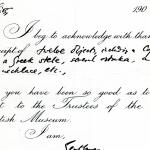 190
I beg to acknowledge with than
ceipt of twelve objects, including a
a Greek stele,
necklace, etc.,
you have been so good as to
t to the Trustees of the
tish Museum.
I am,